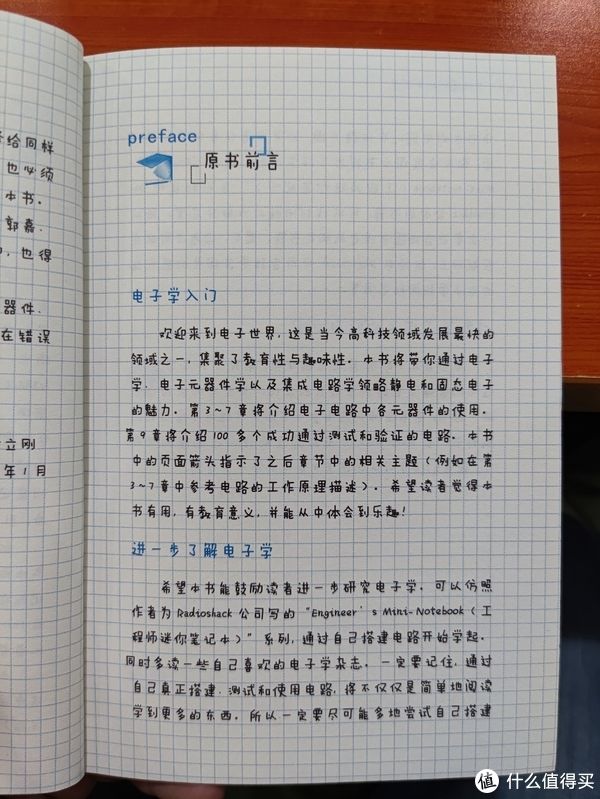 给同样
也必须
本书。
郭嘉、
也得
器件、
在错误
立刚
年1月
preface
原书前言
电子学入门
欢迎来到电子世界，这是当今高科技领域发展最快的
领域之一，集聚了教育性与趣味性。本书将带你通过电子
学、电子元器件学以及集成电路学领略静电和固态电子
的魅力。第3~7章将介绍电子电路中各元器件的使用。
第9章将介绍100多个成功通过测试和验证的电路。本书
中的页面箭头指示了之后章节中的相关主题（例如在第
3~7章中参考电路的工作原理描述）。希望读者觉得本
书有用，有教育意义，并能从中体会到乐趣！
进一步了解电子学
希望本书能鼓励读者进一步研究电子学。可以仿照
作者为Radioshack公司写的"Engineer's Mini-Notebook（工
程师迷你笔记本）"系列，通过自己搭建电路开始学起。
同时多读一些自己喜欢的电子学杂志。一定要记住，通过
自己真正搭建、测试和使用电路，将不仅仅是简单地阅读
学到更多的东西。所以一定要尽可能多地尝试自己搭建
值 什么值得买